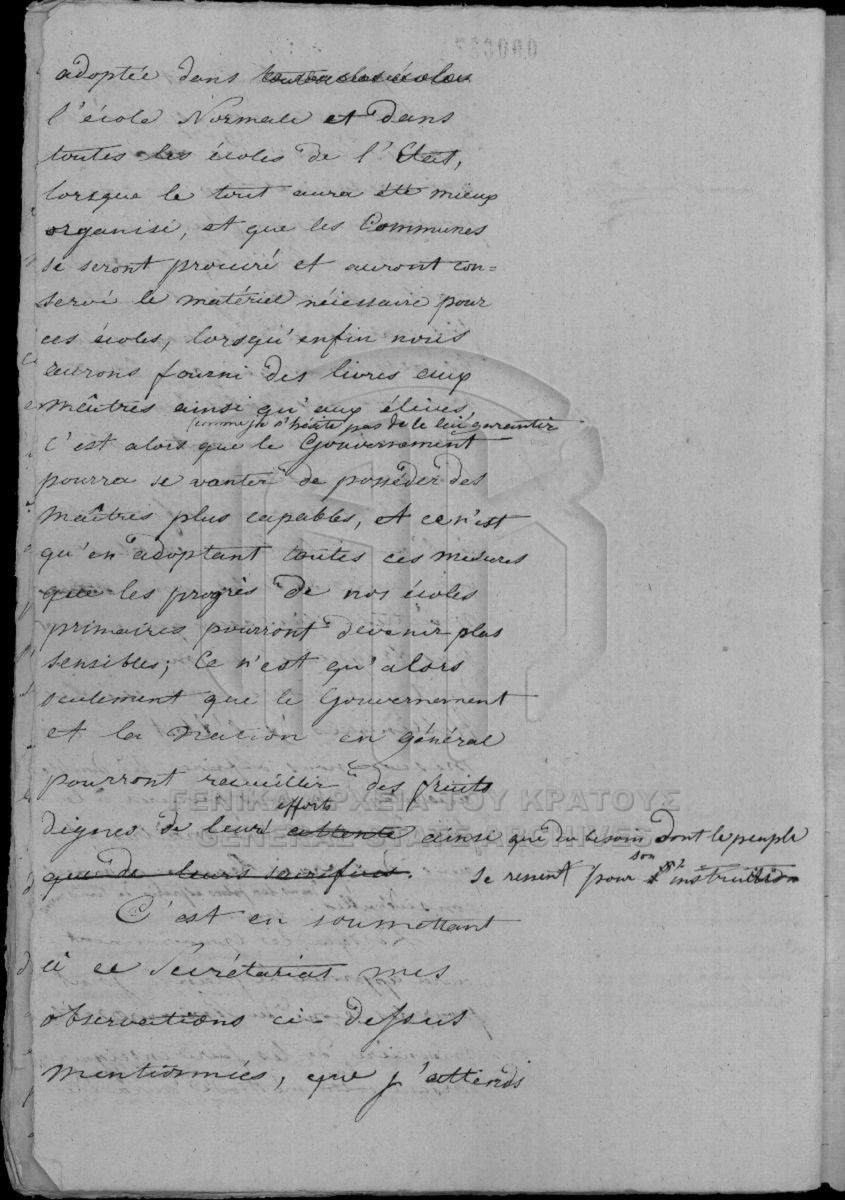 adoptée dans toutes les écoles
l'école Normale et dans
toutes les écoles de l'Etat,
lorsque le tout aura été mieux
organisé, et que les Communes
se seront procuré et auront con=
servé le matériel nécessaire pour
ces écoles, lorsqu'enfin nous
aurons fourni des livres aux
maîtres ainsi qu'aux élèves,
comme je n'hésite pas de le lui garantir
C'est alors que le Gouvernement
pourra se vanter de posséder des
maîtres plus capables, et ce n'est
qu'en adoptant toutes ces mesures
que les progrès de nos écoles
primaires pourront devenir plus
sensibles; Ce n'est qu'alors
seulement que le Gouvernement
et la Nation en général
pourront recueillir des fruits
ΓΕΝΙΚΑ ΑΡΧΕΙΑ ΤΟΥ ΚΡΑΤΟΥΣ
efforts
dignes de leurs attente ainsi que du besoin dont le peuple
GENERAL STATE ARCHIVES
que de leurs sacrifices. se ressent pour son instruction
C'est en soumettant
à ce Secrétariat mes
observations ci-dessus
mentionnées, que j'attends